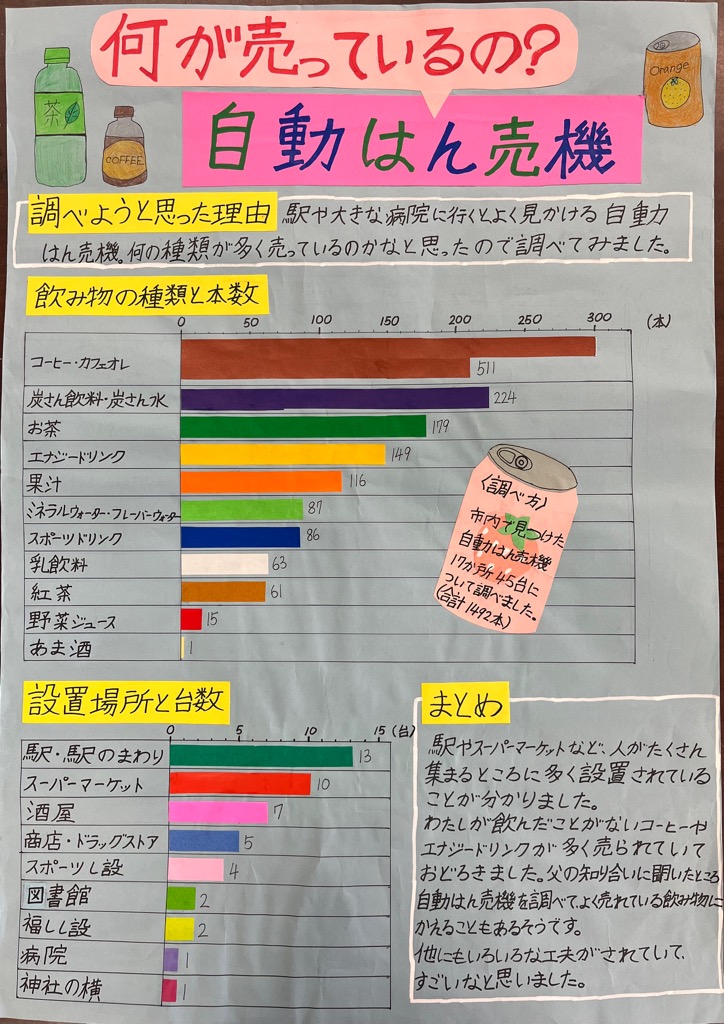 何が売っているの?
自動はん売機
茶
COFFEE
Orange
調べようと思った理由 駅や大きな病院に行くとよく見かける自動
はん売機。何の種類が多く売っているのかなと思ったので調べてみました。
飲み物の種類と本数
0 50 100 150 200 250 300 (本)
コーヒー・カフェオレ 511
炭さん飲料・炭さん水 224
お茶 179
エナジードリンク 149
果汁 116
ミネラルウォーター・フレーバーウォーター 87
スポーツドリンク 86
乳飲料 63
紅茶 61
野菜ジュース 15
あま酒 1
〈調べ方〉
市内で見つけた
自動はん売機
17か所45台に
ついて調べました。
(合計1492本)
設置場所と台数
0 5 10 15 (台)
駅・駅のまわり 13
スーパーマーケット 10
酒屋 7
商店・ドラッグストア 5
スポーツし設 4
図書館 2
福しし設 2
病院 1
神社の横 1
まとめ
駅やスーパーマーケットなど、人がたくさん
集まるところに多く設置されている
ことが分かりました。
わたしが飲んだことがないコーヒーや
エナジードリンクが多く売られていて
おどろきました。父の知り合いに聞いたところ
自動はん売機を調べて、よく売れている飲み物に
かえることもあるそうです。
他にもいろいろな工夫がされていて、
すごいなと思いました。